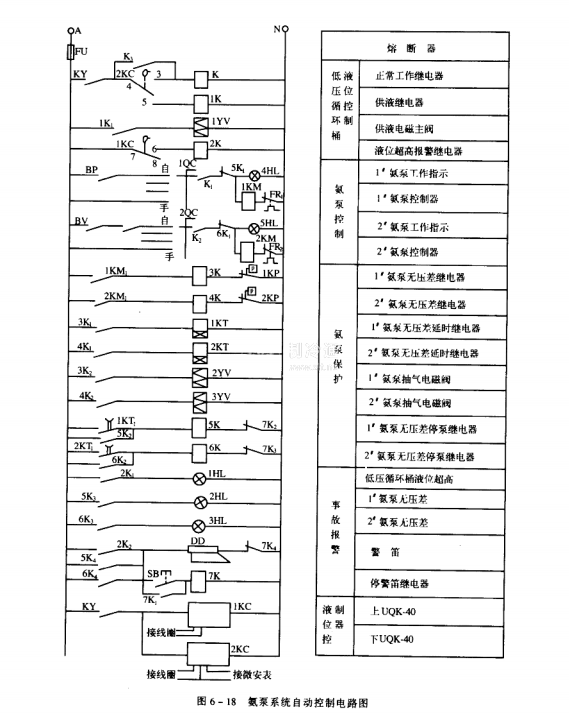 A
N
FU
K₁
KY
2KC
4
3
K
5
1K
1K₁
1YV
1KC
7
6
8
2K
BP
自
1QC
K₁
5K₁
4HL
1KM
FR₁
手
BV
自
2QC
K₂
6K₁
5HL
2KM
FR₂
手
1KM₁
3K
1KP
2KM₁
4K
2KP
3K₁
1KT
4K₁
2KT
3K₂
2YV
4K₂
3YV
1KT₁
5K₂
5K
7K₂
2KT₁
6K₂
6K
7K₃
2K₁
1HL
5K₃
2HL
6K₃
3HL
2K₂
DD
7K₄
5K₄
6K₄
SB
7K
7K₁
KY
1KC
接线圈
2KC
接线圈
接微安表
熔断器
低压循环桶
液位控制
正常工作继电器
供液继电器
供液电磁主阀
液位超高报警继电器
氨泵控制
1#氨泵工作指示
1#氨泵控制器
2#氨泵工作指示
2#氨泵控制器
氨泵保护
1#氨泵无压差继电器
2#氨泵无压差继电器
1#氨泵无压差延时继电器
2#氨泵无压差延时继电器
1#氨泵抽气电磁阀
2#氨泵抽气电磁阀
1#氨泵无压差停泵继电器
2#氨泵无压差停泵继电器
事故报警
低压循环桶液位超高
1#氨泵无压差
2#氨泵无压差
警笛
停警笛继电器
液位控
制器
上UQK-40
下UQK-40
图6-18 氨泵系统自动控制电路图